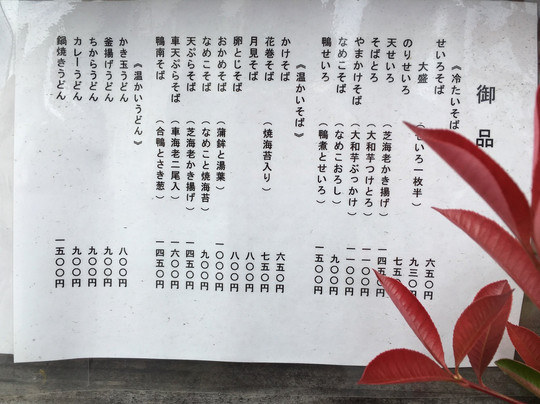 御品
《冷たいそば
せいろそば 六五〇円
大盛 いろ一枚半） 九三〇円
のりせいろ 七五
天せいろ （芝海老かき揚げ） 一四五〇
そばとろ （大和芋つけとろ） 一一〇〇円
やまかけそば （大和芋ぶっかけ） 一一〇〇円
なめこそば （なめこおろし） 九〇〇円
鴨せいろ （鴨煮とせいろ） 一五〇〇円
《温かいそば》
かけそば 六五〇円
花巻そば （焼海苔入り） 七五〇円
月見そば 八〇〇円
卵とじそば 八〇〇円
おかめそば （蒲鉾と湯葉） 一〇〇〇円
なめこそば （なめこと焼海苔） 九〇〇円
天ぷらそば （芝海老かき揚げ） 一四五〇円
車天ぷらそば （車海老二尾入） 一六〇〇円
鴨南そば （合鴨とさき葱） 一四五〇円
《温かいうどん》
かき玉うどん 八〇〇円
釜揚げうどん 九〇〇円
ちからうどん 九〇〇円
カレーうどん 九〇〇円
鍋焼きうどん 一五〇〇円